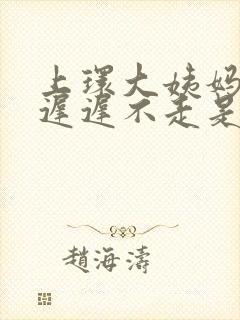 上环大姨妈
迟迟不走是
趙海濤